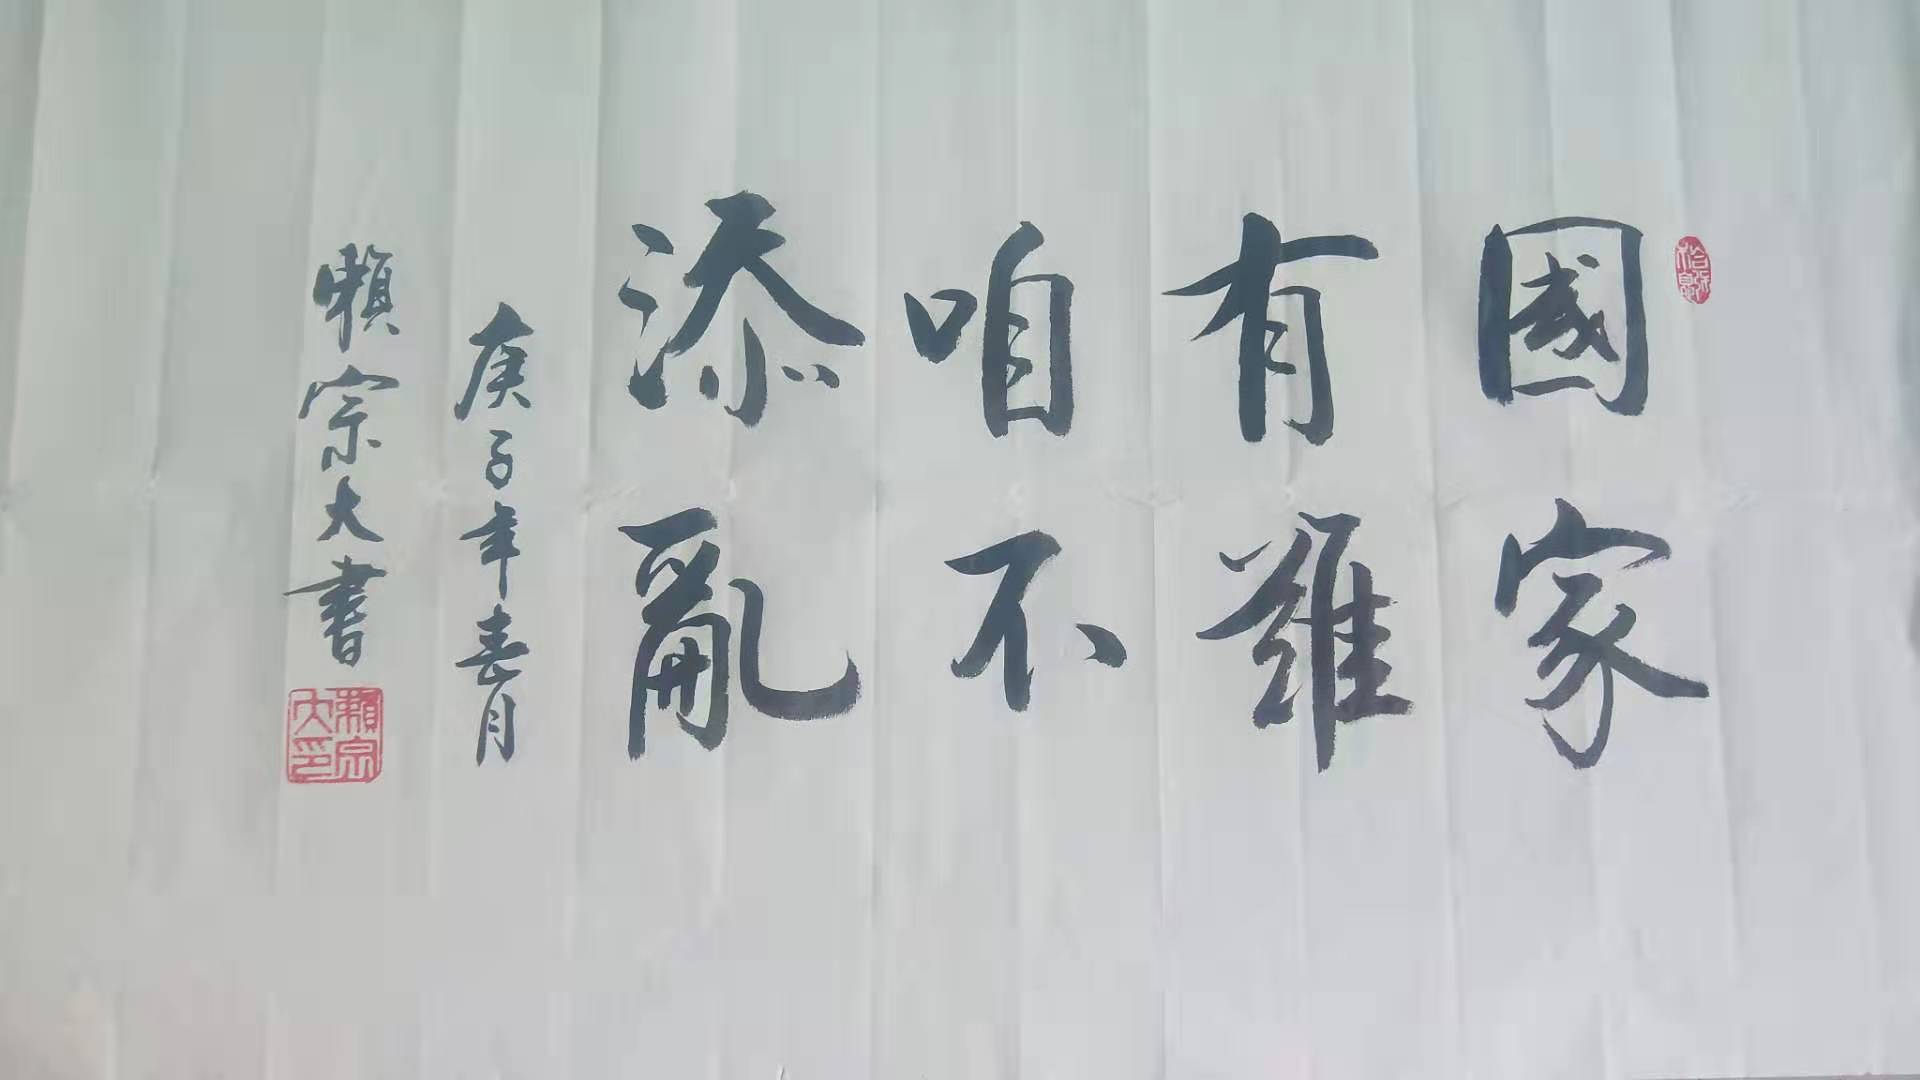 國家
有難
咱不
添亂
庚子年春月
賴宗大書
賴宗大印